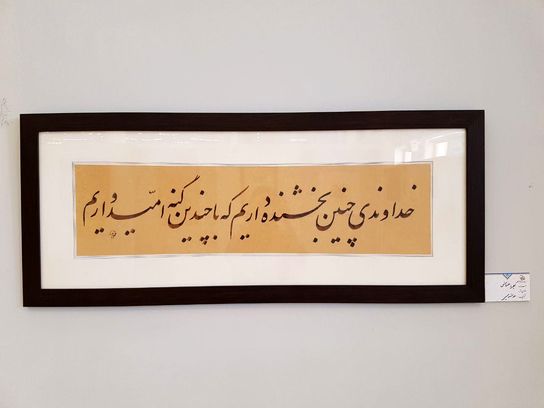 خداوندی چنین بخشنده داریم که با چندین گنه امیدواریم